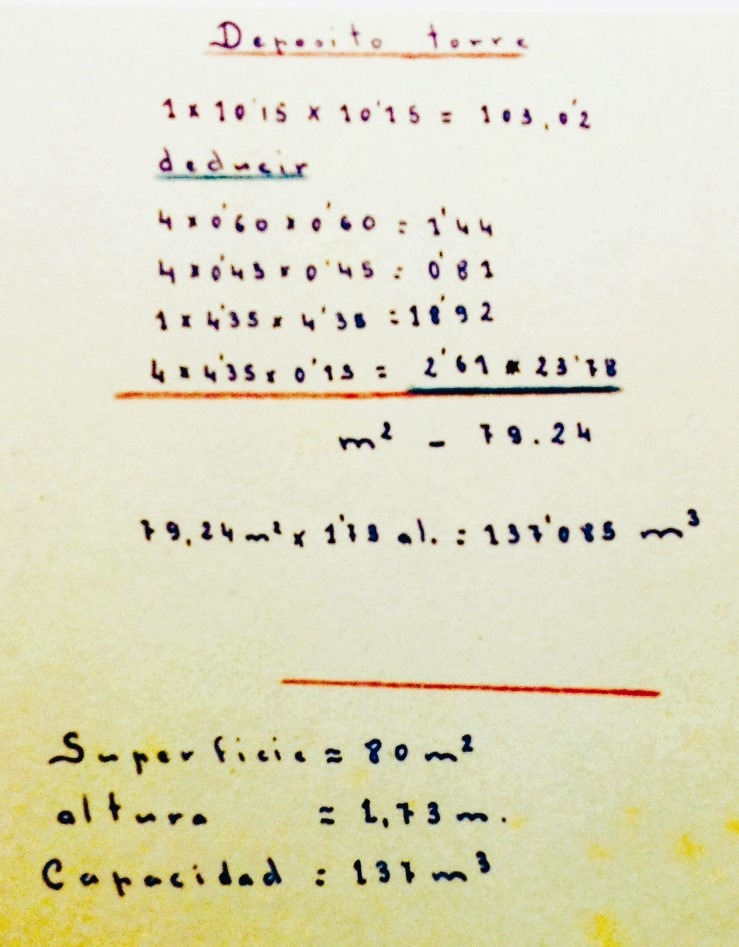 Deposito torre
1 x 10'15 x 10'15 = 103,0'2
deducir
4 x 0'60 x 0'60 = 1'44
4 x 0'45 x 0'45 = 0'81
1 x 4'35 x 4'35 = 18'92
4 x 4'35 x 0'15 = 2'61 = 23'78
m² - 79.24
79,24 m² x 1'73 al. = 137'085 m³
Superficie = 80 m²
altura = 1,73 m.
Capacidad = 137 m³